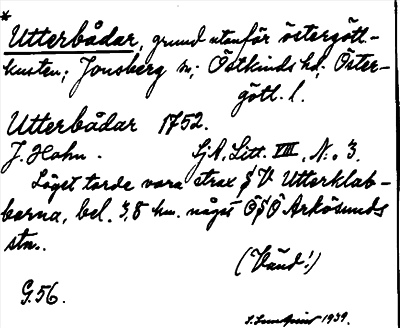 *
Utterbådar, grund utanför östergött-
kusten; Jonsberg sn; Östkinds hd; Öster-
götl. l.
Utterbådar 1752.
J. Hahn. SjA. Litt. VIII, N:o 3.
Läget torde vara strax S V Utterklab-
barna, bel. 3,8 km. något Ö S Ö Arkösunds
stn.
(Vänd!)
G.56.
1939.